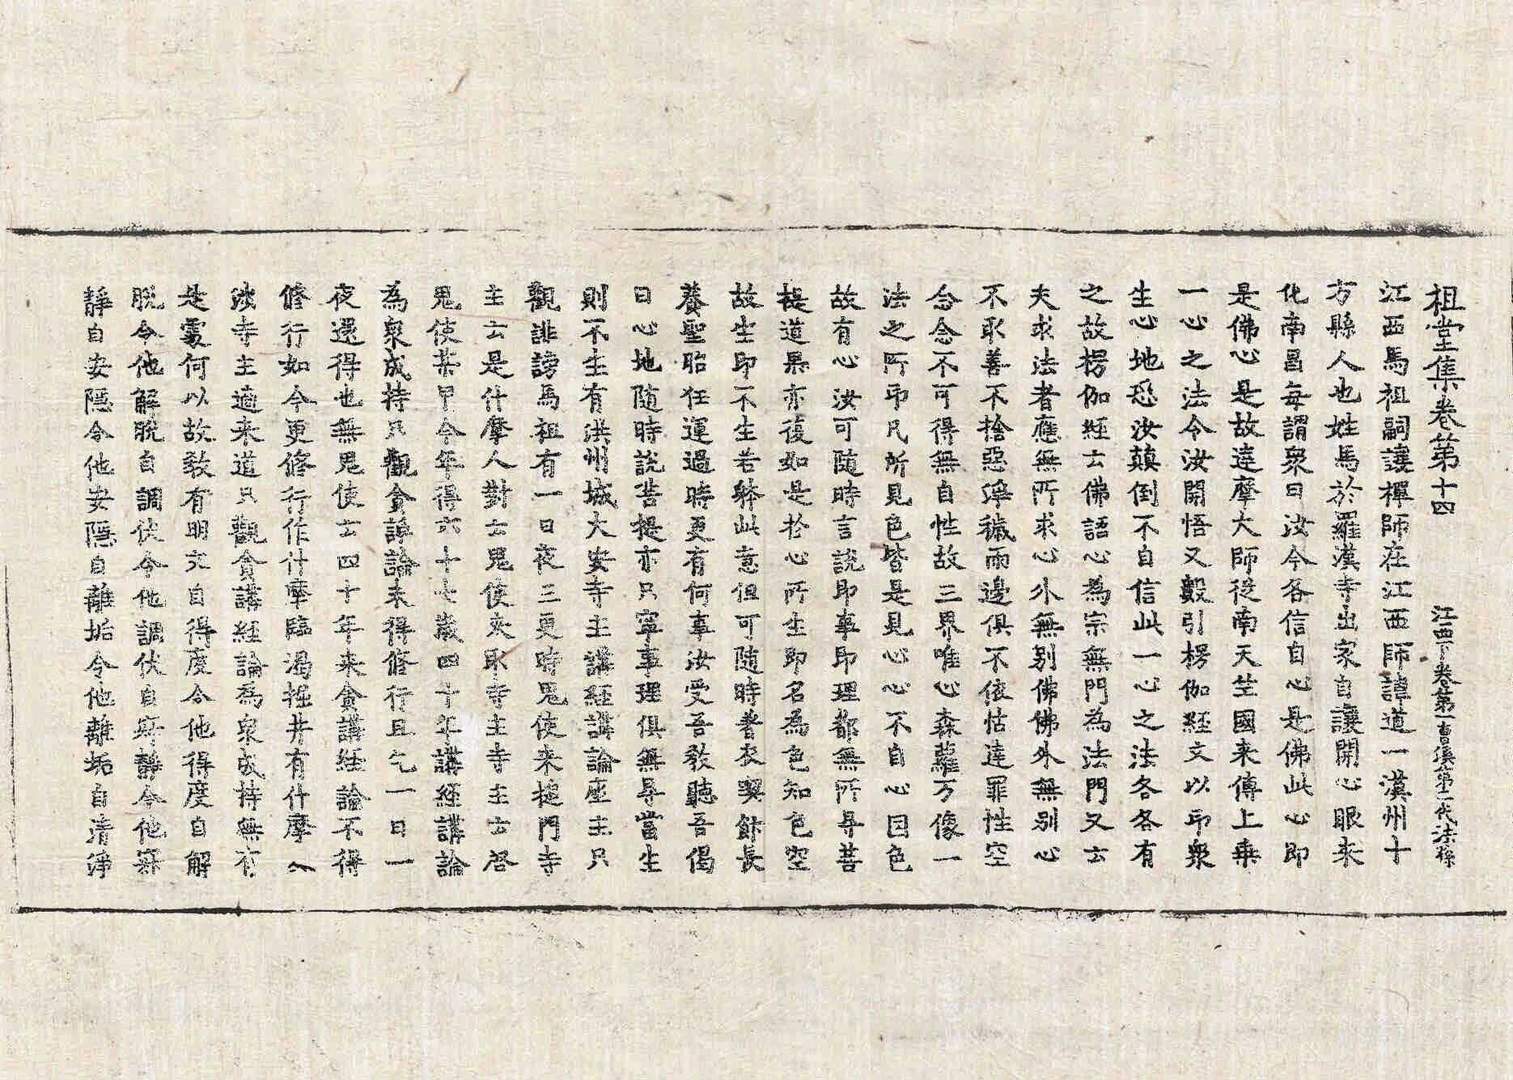 祖堂集卷第十四　江西下卷第一曹溪第二代法孫
江西馬祖嗣讓禪師在江西師諱道一漢州十
方縣人也姓馬於羅漢寺出家自讓開心眼来
化南昌每謂衆曰汝今各信自心是佛此心即
是佛心是故達摩大師從南天竺國来傳上乗
一心之法令汝開悟又數引楞伽經文以印衆
生心地恐汝顛倒不自信此一心之法各各有
之故楞伽經云佛語心為宗無門為法門又云
夫求法者應無所求心外無别佛佛外無别心
不取善不捨惡淨穢兩邊俱不依怙達罪性空
念念不可得無自性故三界唯心森羅万像一
法之所印凡所見色皆是見心心不自心因色
故有心汝可随時言說即事即理都無所㝵菩
提道果亦復如是於心所生即名為色知色空
故生即不生若躰此意但可随時著衣喫飰長
養聖胎任運過時更有何事汝受吾教聽吾偈
曰心地随時說菩提亦只寧事理俱無㝵當生
則不生有洪州城大安寺主講經講論座主只
觀誹謗馬祖有一日夜三更時鬼使来搥門寺
主云是什摩人對云鬼使来取寺主寺主云啓
鬼使某甲今年得六十七歲四十年講經講論
為衆成持只觀貪諍論未得修行且乞一日一
夜還得也無鬼使云四十年来貪講經論不得
修行如今更修行作什摩臨渇掘井有什摩交
涉寺主適来道只觀貪講經論為衆成持無有
是處何以故教有明文自得度令他得度自解
脫令他解脫自調伏令他調伏自寂靜令他寂
靜自安隱令他安隱自離垢令他離垢自清淨